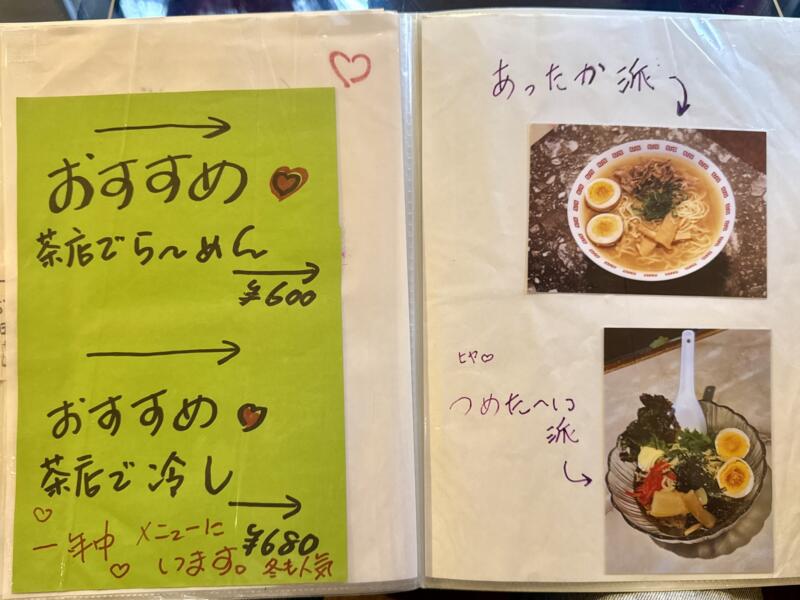 おすすめ
茶店でら〜めん
¥600
おすすめ
茶店で冷し
¥680
一年中 メニューに
います。 冬も人気
あったか派
ヒヤ♡
つめた〜い
派